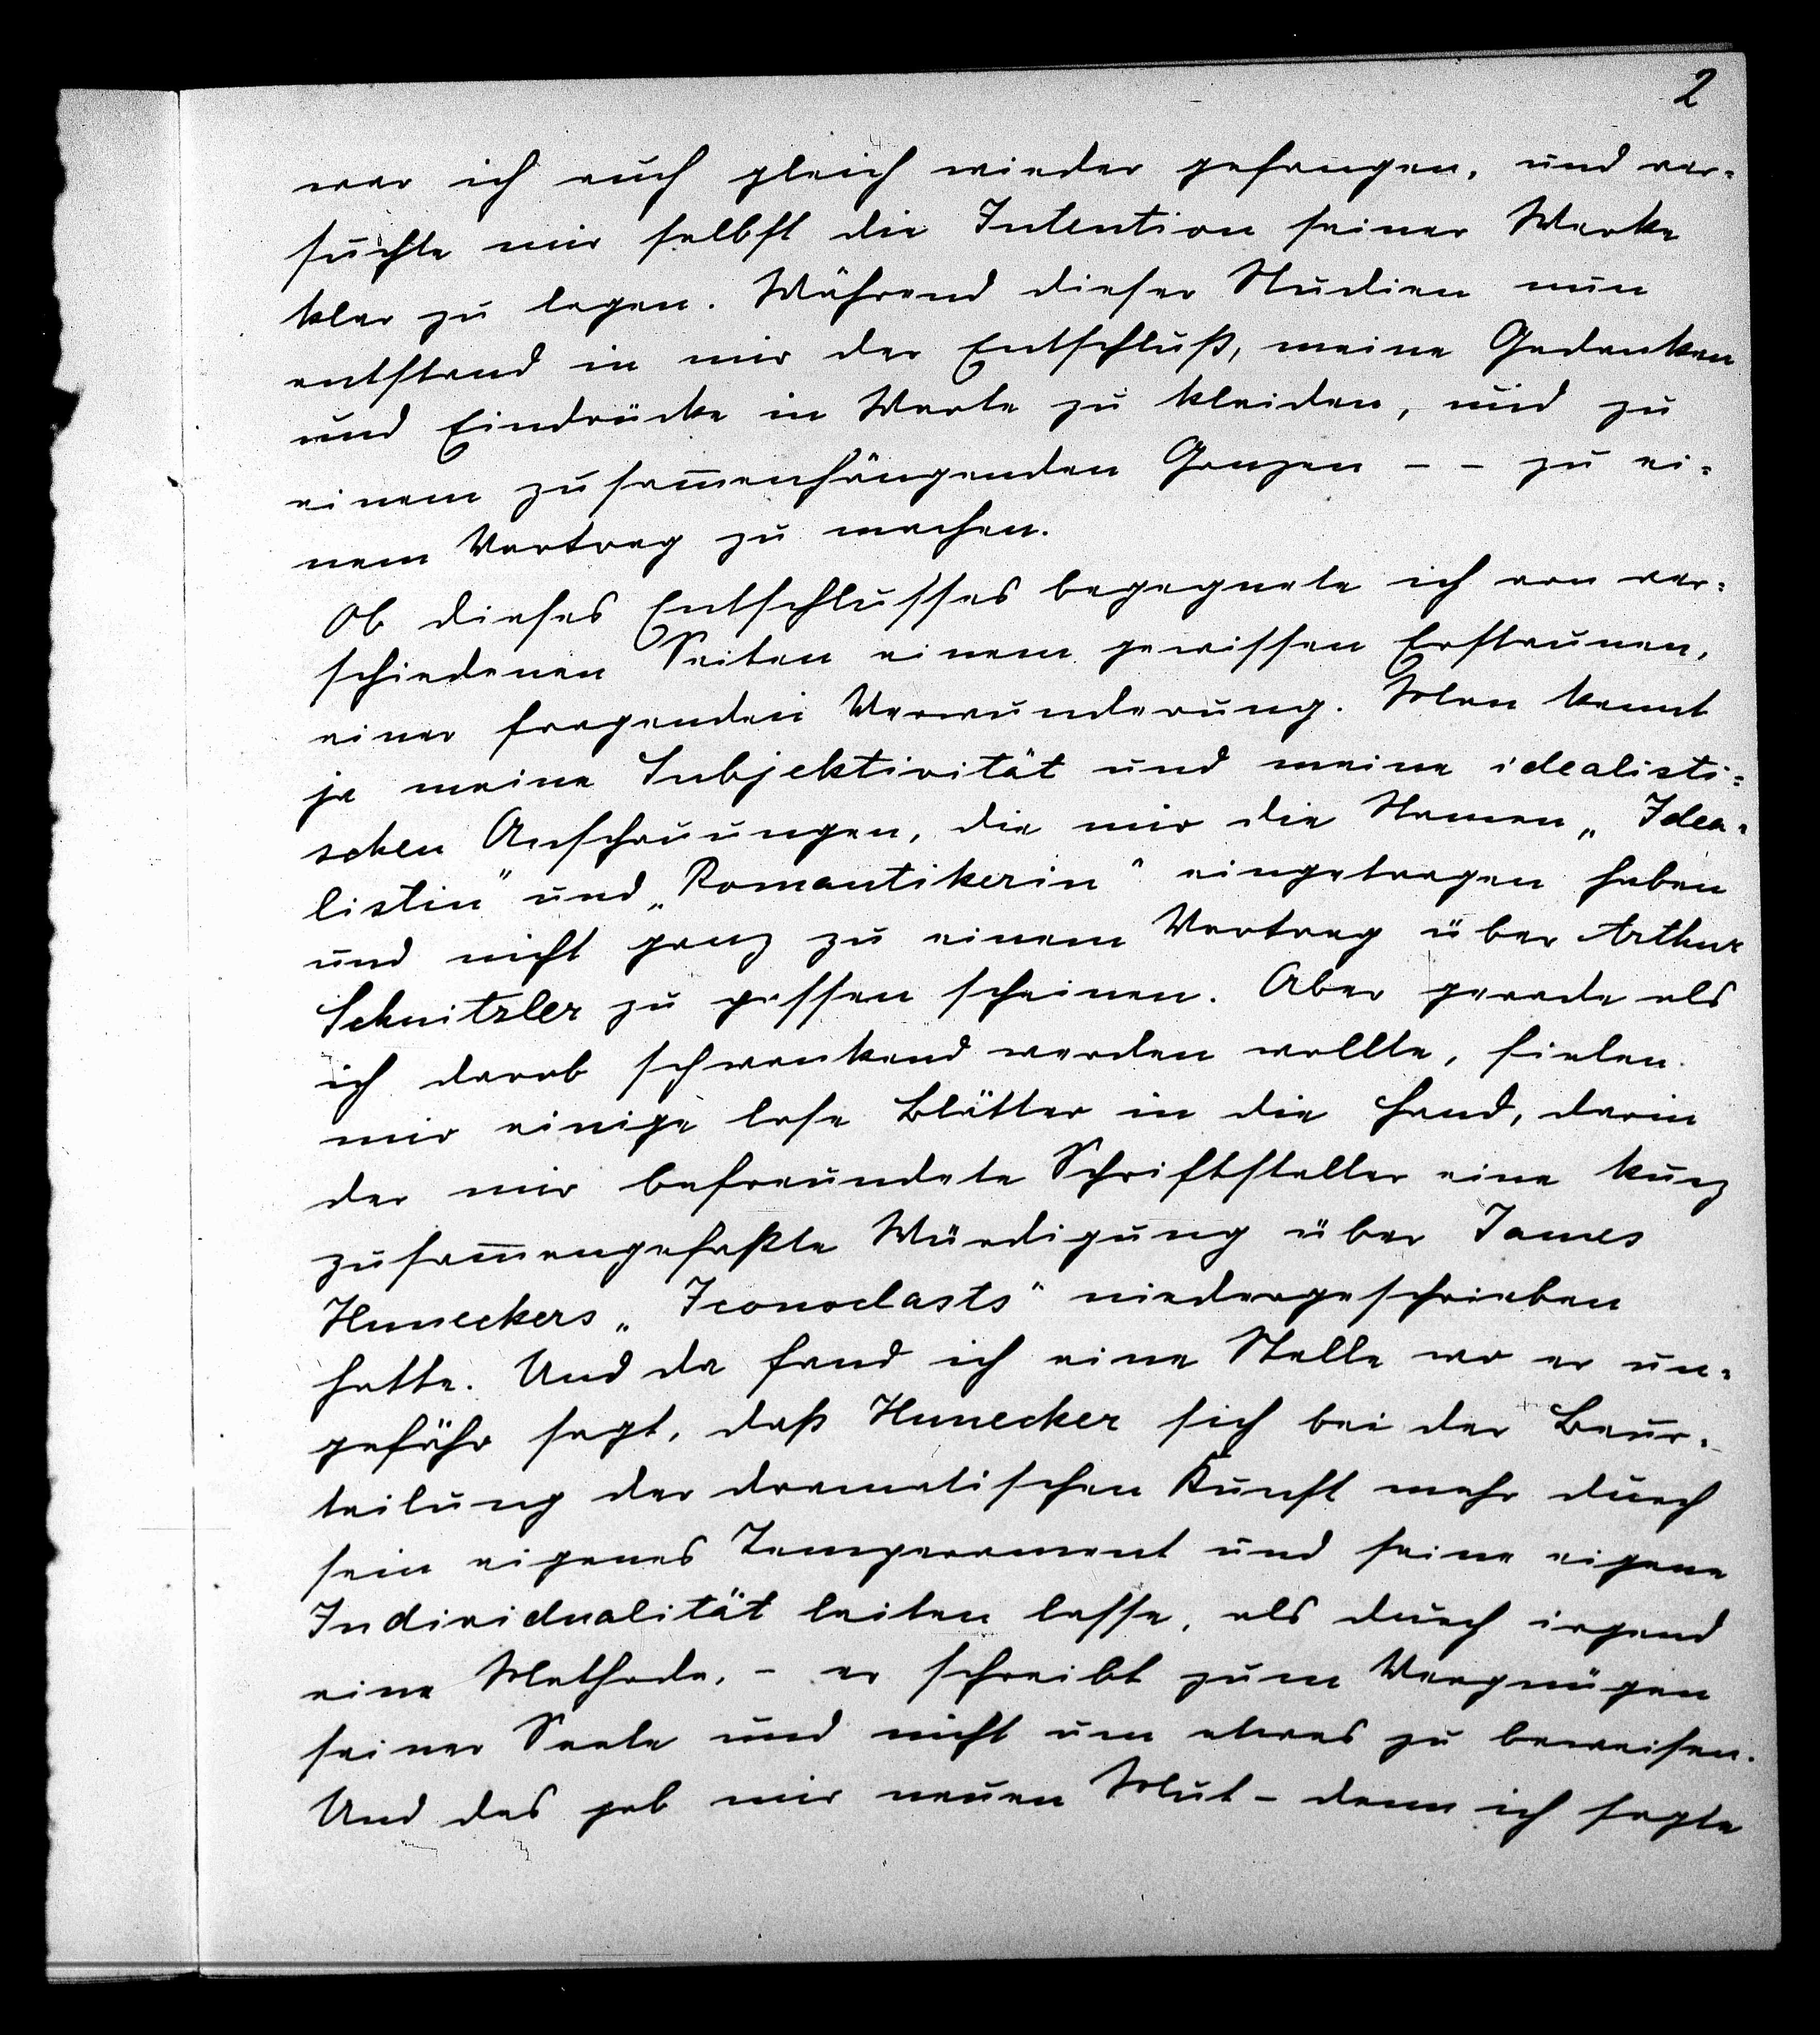 2
war ich auch gleich wieder gefangen, und ver=
suchte mir selbst die Intention seiner Werke
klar zu legen. Während dieser Studien nun
entstand in mir der Entschluß, meine Gedanken
und Eindrücke in Worte zu kleiden, und zu
einem zusam̅enhängenden Ganzen – – zu ei=
nem Vortrag zu machen.
Ob dieses Entschlusses begegnete ich von ver=
schiedenen Seiten einem gewissen Erstaunen,
einer fragenden Verwunderung. Man kennt
ja meine Subjektivität und meine idealisti=
schen Anschauungen, die mir die Namen „Idea=
listin“ und „Romantikerin“ eingetragen haben
und nicht ganz zu einem Vortrag über Arthur
Schnitzler zu passen scheinen. Aber gerade als
ich darob schwankend werden wollte, fielen
mir einige lose Blätter in die Hand, darin
der mir befreundete Schriftsteller eine kurz
zusam̅engefaßte Würdigung über James
Huneckers „Iconoclasts“ niedergeschrieben
hatte. Und da fand ich eine Stelle wo er un=
gefähr sagt, daß Hunecker sich bei der Beur=
teilung der dramatischen Kunst mehr durch
sein eigenes Temperament und seine eigene
Individualität leiten lasse, als durch irgend
eine Methode, – er schreibt zum Vergnügen
seiner Seele und nicht um etwas zu beweisen.
Und das gab mir neuen Mut – denn ich sagte